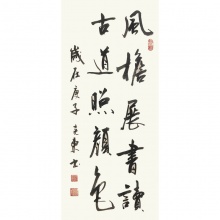 風檐展書讀
古道照顏色
歲在庚子